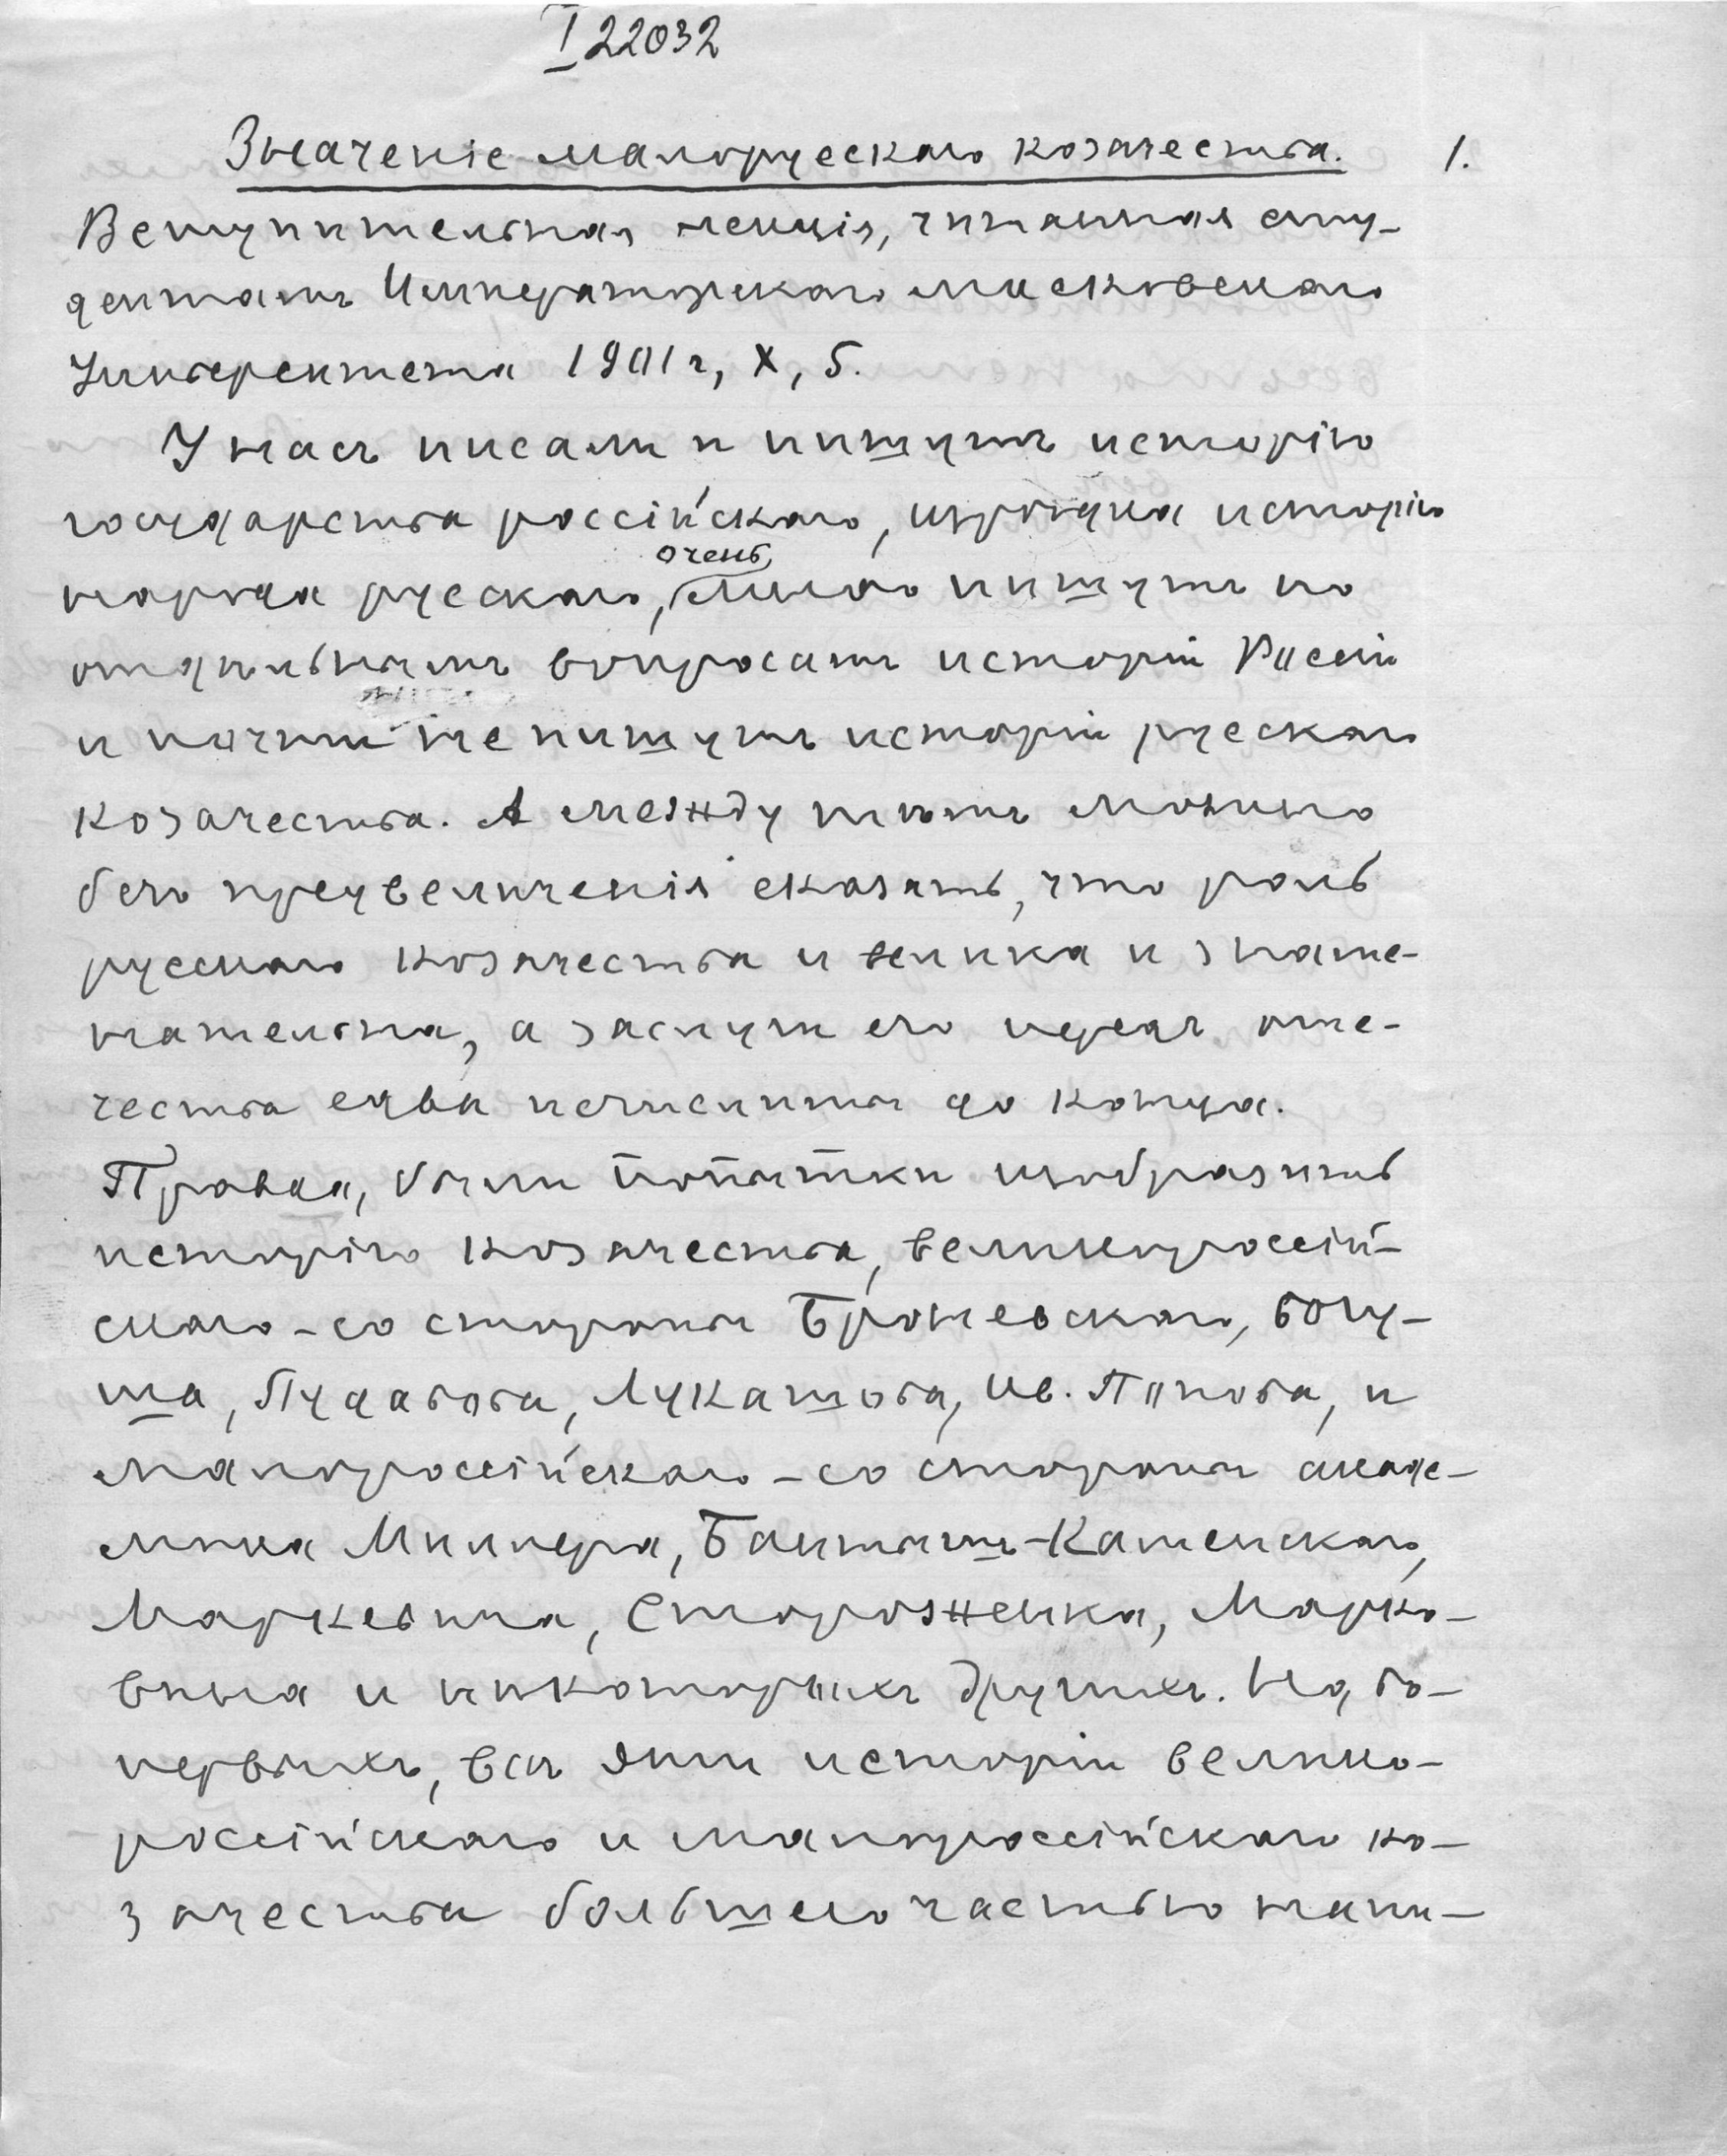 I 22032
Значеніе малорусскаго козачества. 1.
Вступительная лекція, читанная сту-
дентамъ Императорскаго Московскаго
Университета 1901 г, X, 5.
У насъ писали и пишутъ исторію
государства россійскаго, изрѣдка исторію
очень
народа русскаго, много пишутъ по
отдѣльнымъ вопросамъ исторіи Россіи
и почти не пишутъ исторіи русскаго
козачества. А между тѣмъ можно
безъ преувеличенія сказать, что роль
русскаго козачества и велика и знаме-
нательна, а заслуги его передъ оте-
чества едва исчислимы до конца.
Правда, были попытки изобразить
исторію козачества, великороссій-
скаго – со стороны Броневскаго, Богу-
ша, Пудавова, Лукашова, Ив. Попова, и
малороссійскаго – со стороны акаде-
мика Миллера, Бантышъ-Каменскаго,
Маркевича, Стороженка, Марко-
вина и нѣкоторыхъ другихъ. Но, во-
первыхъ, всѣ эти исторіи велико-
россійскаго и малороссійскаго ко-
зачества большею частью напи-